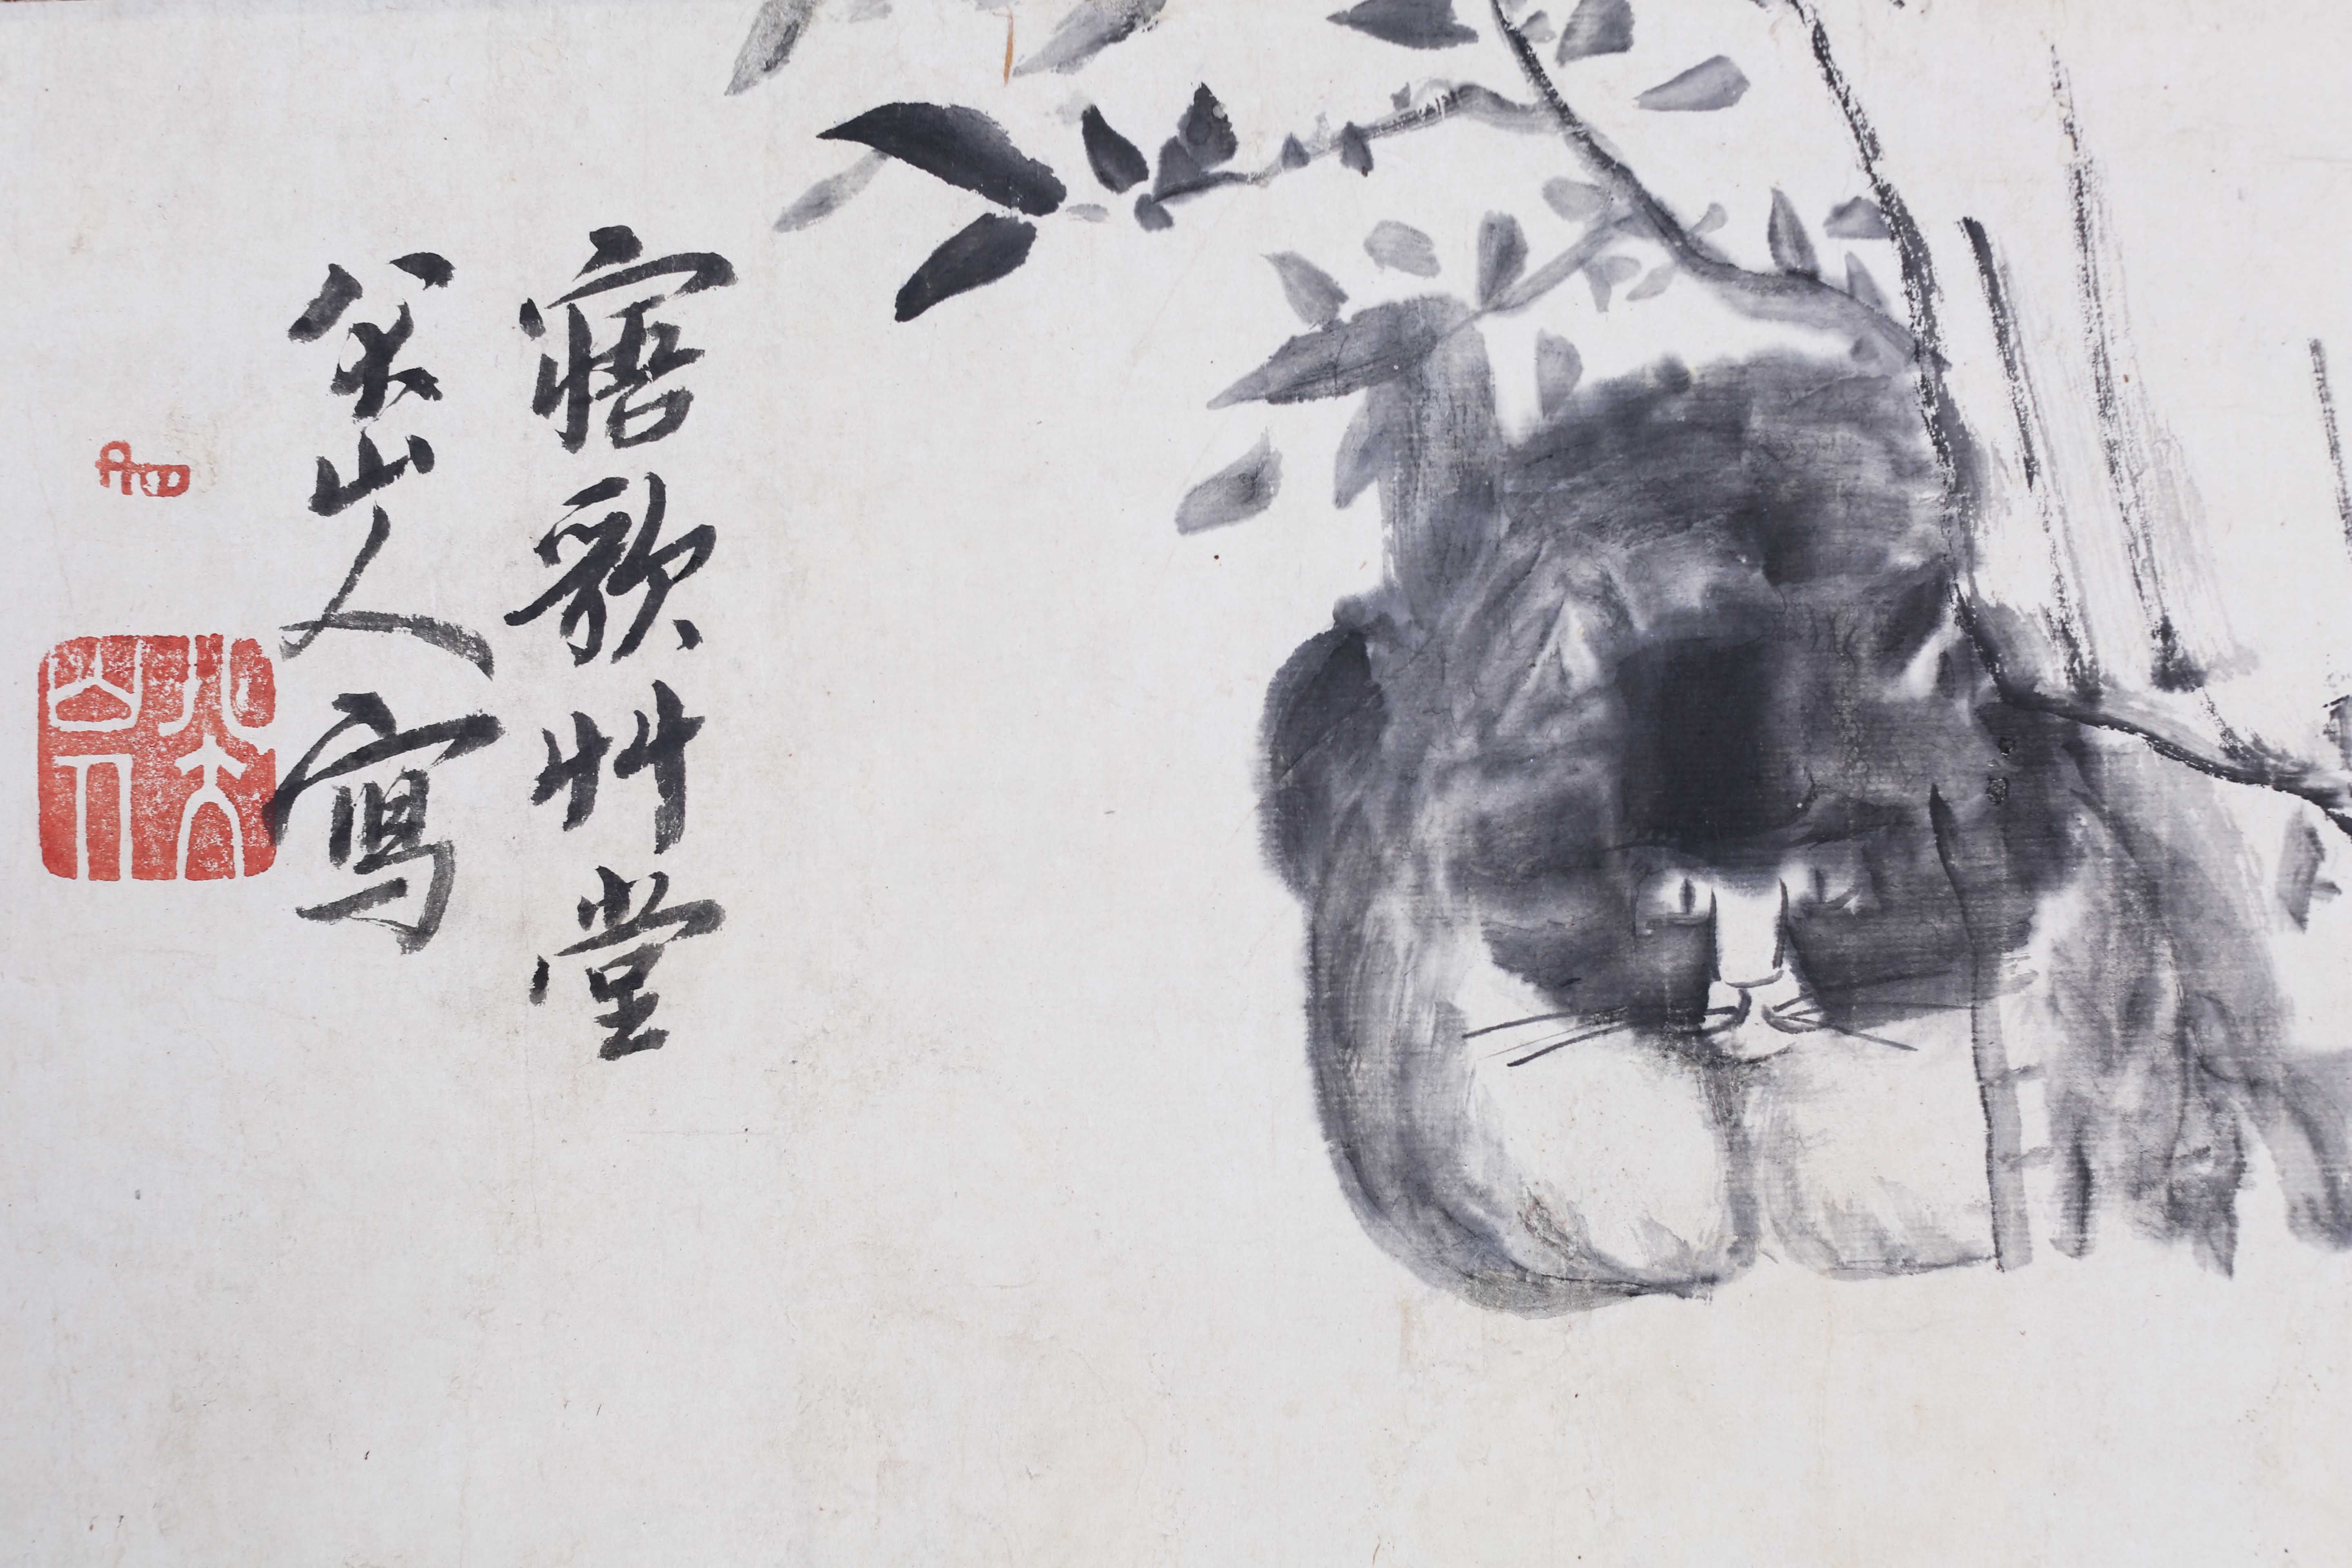 寤歌艸堂
八大山人寫
八大山人